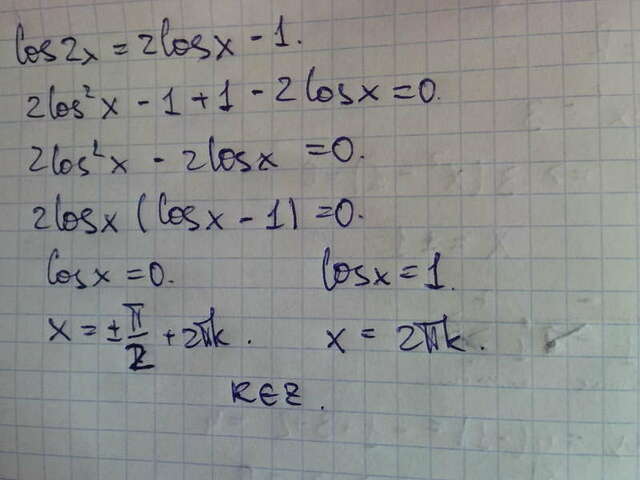 cos2x = 2cosx - 1.
2cos²x - 1 + 1 - 2cosx = 0.
2cos²x - 2cosx = 0.
2cosx (cosx - 1) = 0.
cosx = 0. cosx = 1.
x = ± π/2 + 2πk. x = 2πk.
k ∈ Z.